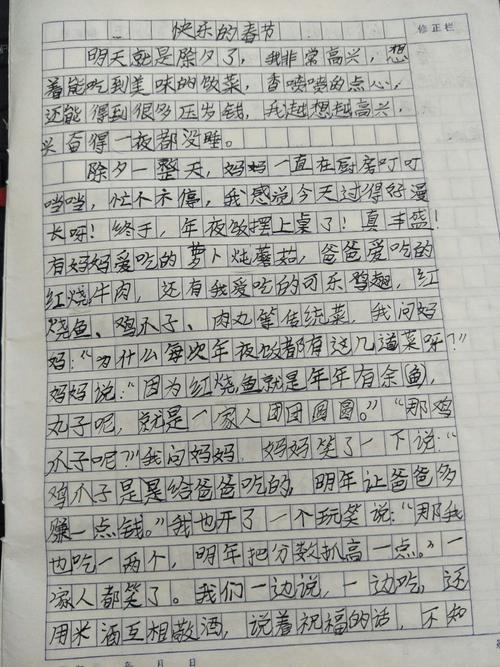 快乐的春节
修正栏
明天就是除夕了，我非常高兴，想
着能吃到美味的饭菜，香喷喷的点心，
还能得到很多压岁钱，我越想越高兴，
兴奋得一夜都没睡。
除夕一整天，妈妈一直在厨房叮叮
当当，忙个不停，我感觉今天过得好漫
长呀！终于，年夜饭摆上桌了！真丰盛！
有妈妈爱吃的萝卜炖蘑菇，爸爸爱吃的
红烧牛肉，还有我爱吃的可乐鸡翅，红
烧鱼、鸡爪子、肉丸等传统菜，我问妈
妈：“为什么每次年夜饭都有这几道菜呀？”
妈妈说：“因为红烧鱼就是年年有余(鱼)，
丸子呢，就是一家人团团圆圆。”“那鸡
爪子呢？”我问妈妈，妈妈笑了一下说：“
鸡爪子是是给爸爸吃的，明年让爸爸多
赚一点钱。”我也开了一个玩笑说：“那我
也吃一两个，明年把分数抓高一点。”一
家人都笑了。我们一边说，一边吃，还
用米酒互相敬酒，说着祝福的话，不知
年 月 日